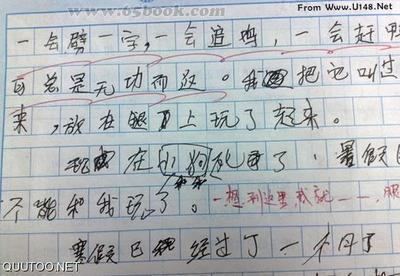 www.65book.com
From Www.U148.Net
一会劈一字,一会追鸡,一会赶鸭
可总是无功而返。我把它叫过
来,放在腿上玩了起来。
现在小狗死了,暑假
不能和我玩了。一想到这里,我就——,眼
暑假已经经过了一个月了
QUUTOO.NET